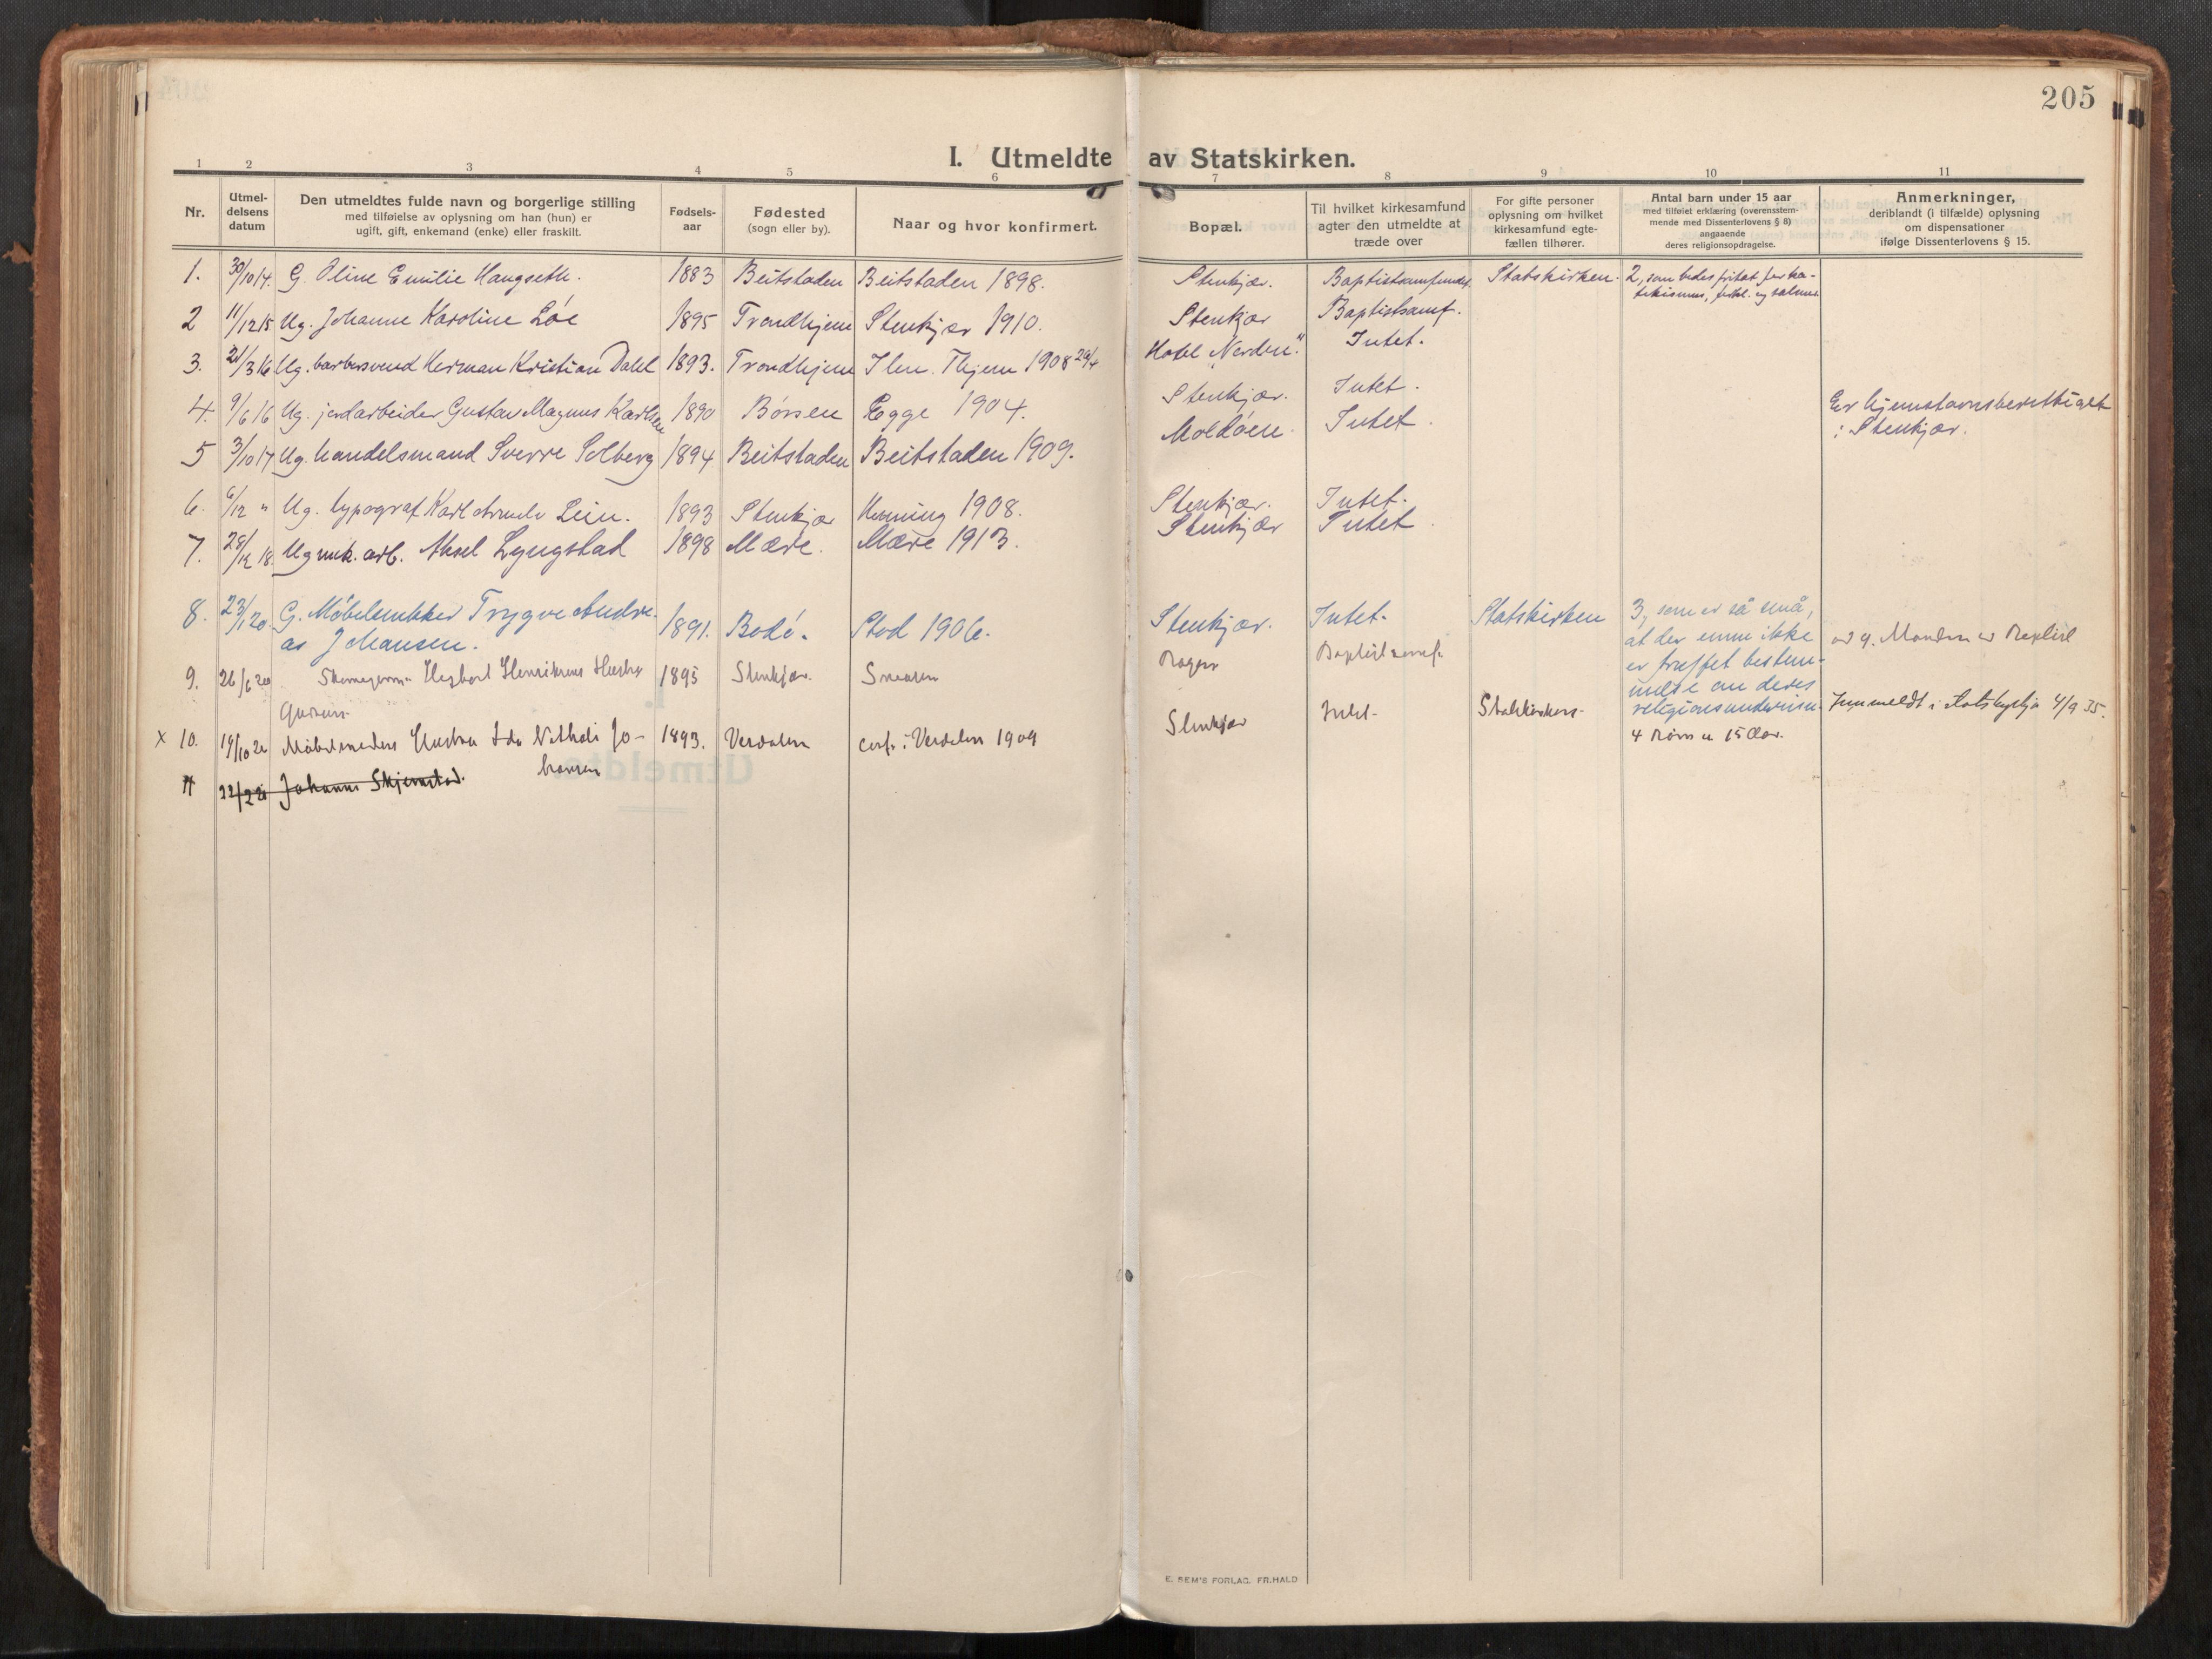 205
I. Utmeldte av Statskirken.
1 2 3 4 5 6 7 8 9 10 11
Nr.
Utmel-
delsens
datum
Den utmeldtes fulde navn og borgerlige stilling
med tilføielse av oplysning om han (hun) er
ugift, gift, enkemand (enke) eller fraskilt.
Fødsels-
aar
Fødested
(sogn eller by).
Naar og hvor konfirmert.
Bopæl.
Til hvilket kirkesamfund
agter den utmeldte at
træde over
For gifte personer
oplysning om hvilket
kirkesamfund egte-
fællen tilhører.
Antal barn under 15 aar
med tilføiet erklæring (overensstem-
mende med Dissenterlovens § 8)
angaaende
deres religionsopdragelse.
Anmerkninger,
deriblandt (i tilfælde) oplysning
om dispensationer
ifølge Dissenterlovens § 15.
1. 30/10 14. G. Oline Emilie Haugseth. 1883 Beitstaden Beitstaden 1898. Stenkjær. Baptistsamfundet Statskirken. 2, som bedes fritat for ka-
tekismus, forkl. og salmer.
2 11/12 15 Ug. Johanne Karoline Løe 1895 Trondhjem Stenkjær 1910. Stenkjær Baptistsamf.
3. 21/3 16 Ug. barbersvend Herman Kristian Dahl 1893. Trondhjem Ilen. Thjem 1908 26/4 Hotel "Norden". Intet.
4. 9/6 16 Ug. jordarbeider Gustav Magnus Karlsen 1890 Børsen Egge 1904. Stenkjær. Intet. Er hjemstavnsberettiget
i Stenkjær.
5 3/10 17 Ug. handelsmand Sverre Solberg 1894 Beitstaden Beitstaden 1909. Moldøen. Intet.
6. 6/12 " Ug. typograf Karl Lein. 1893 Stenkjær Henning 1908. Stenkjær. Intet.
7. 28/12 18. Ug mek. arb. Aksel Lyngstad 1898 Mære. Mære 1913. Stenkjær Intet.
8. 23/1 20. G. Møbelsnekker Trygve Andre-
as Johansen. 1891. Bodø. Stod 1906. Stenkjær. Intet. Statskirken 3, som er så små,
at der ennu ikke
er truffet bestem-
melse om deres
religionsundervisn.
9. 26/6 20 Henriksens Hustru
1895 Stenkjær. Snaasen Baptistsamf. Manden er Baptist
x 10. 19/10 20 Møbelsnedker Hustru Ida Nathali Jo-
hansen 1893. Verdalen conf. i Verdalen 1909 Stenkjær Intet. Statskirken. 4 Børn u 15 Aar. Innmeldt i statskyrkja 4/9 35.
11 22/2 21 Johannes Skjerstad.
E. SEM'S FORLAG. FR.HALD